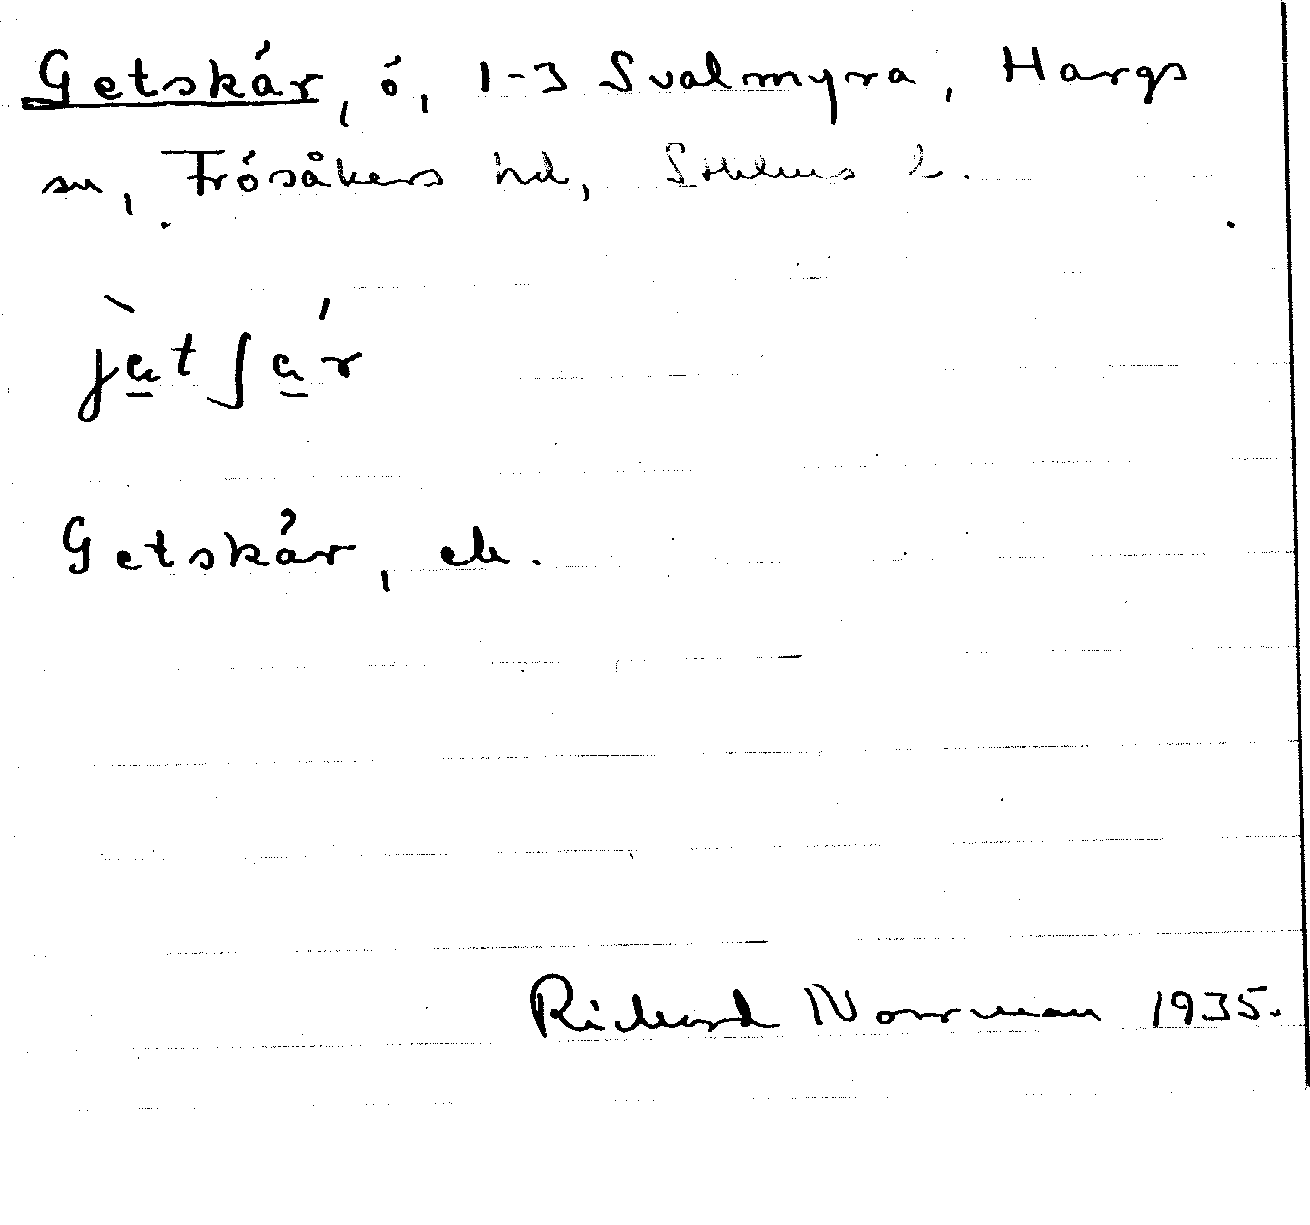 Getskár, ó, 1-3 Svalmyra, Hargs
sn, Frósåkers hd, Sthlms l.
jàtʃár
Getskår, ek.
Rickard Norrman 1935.